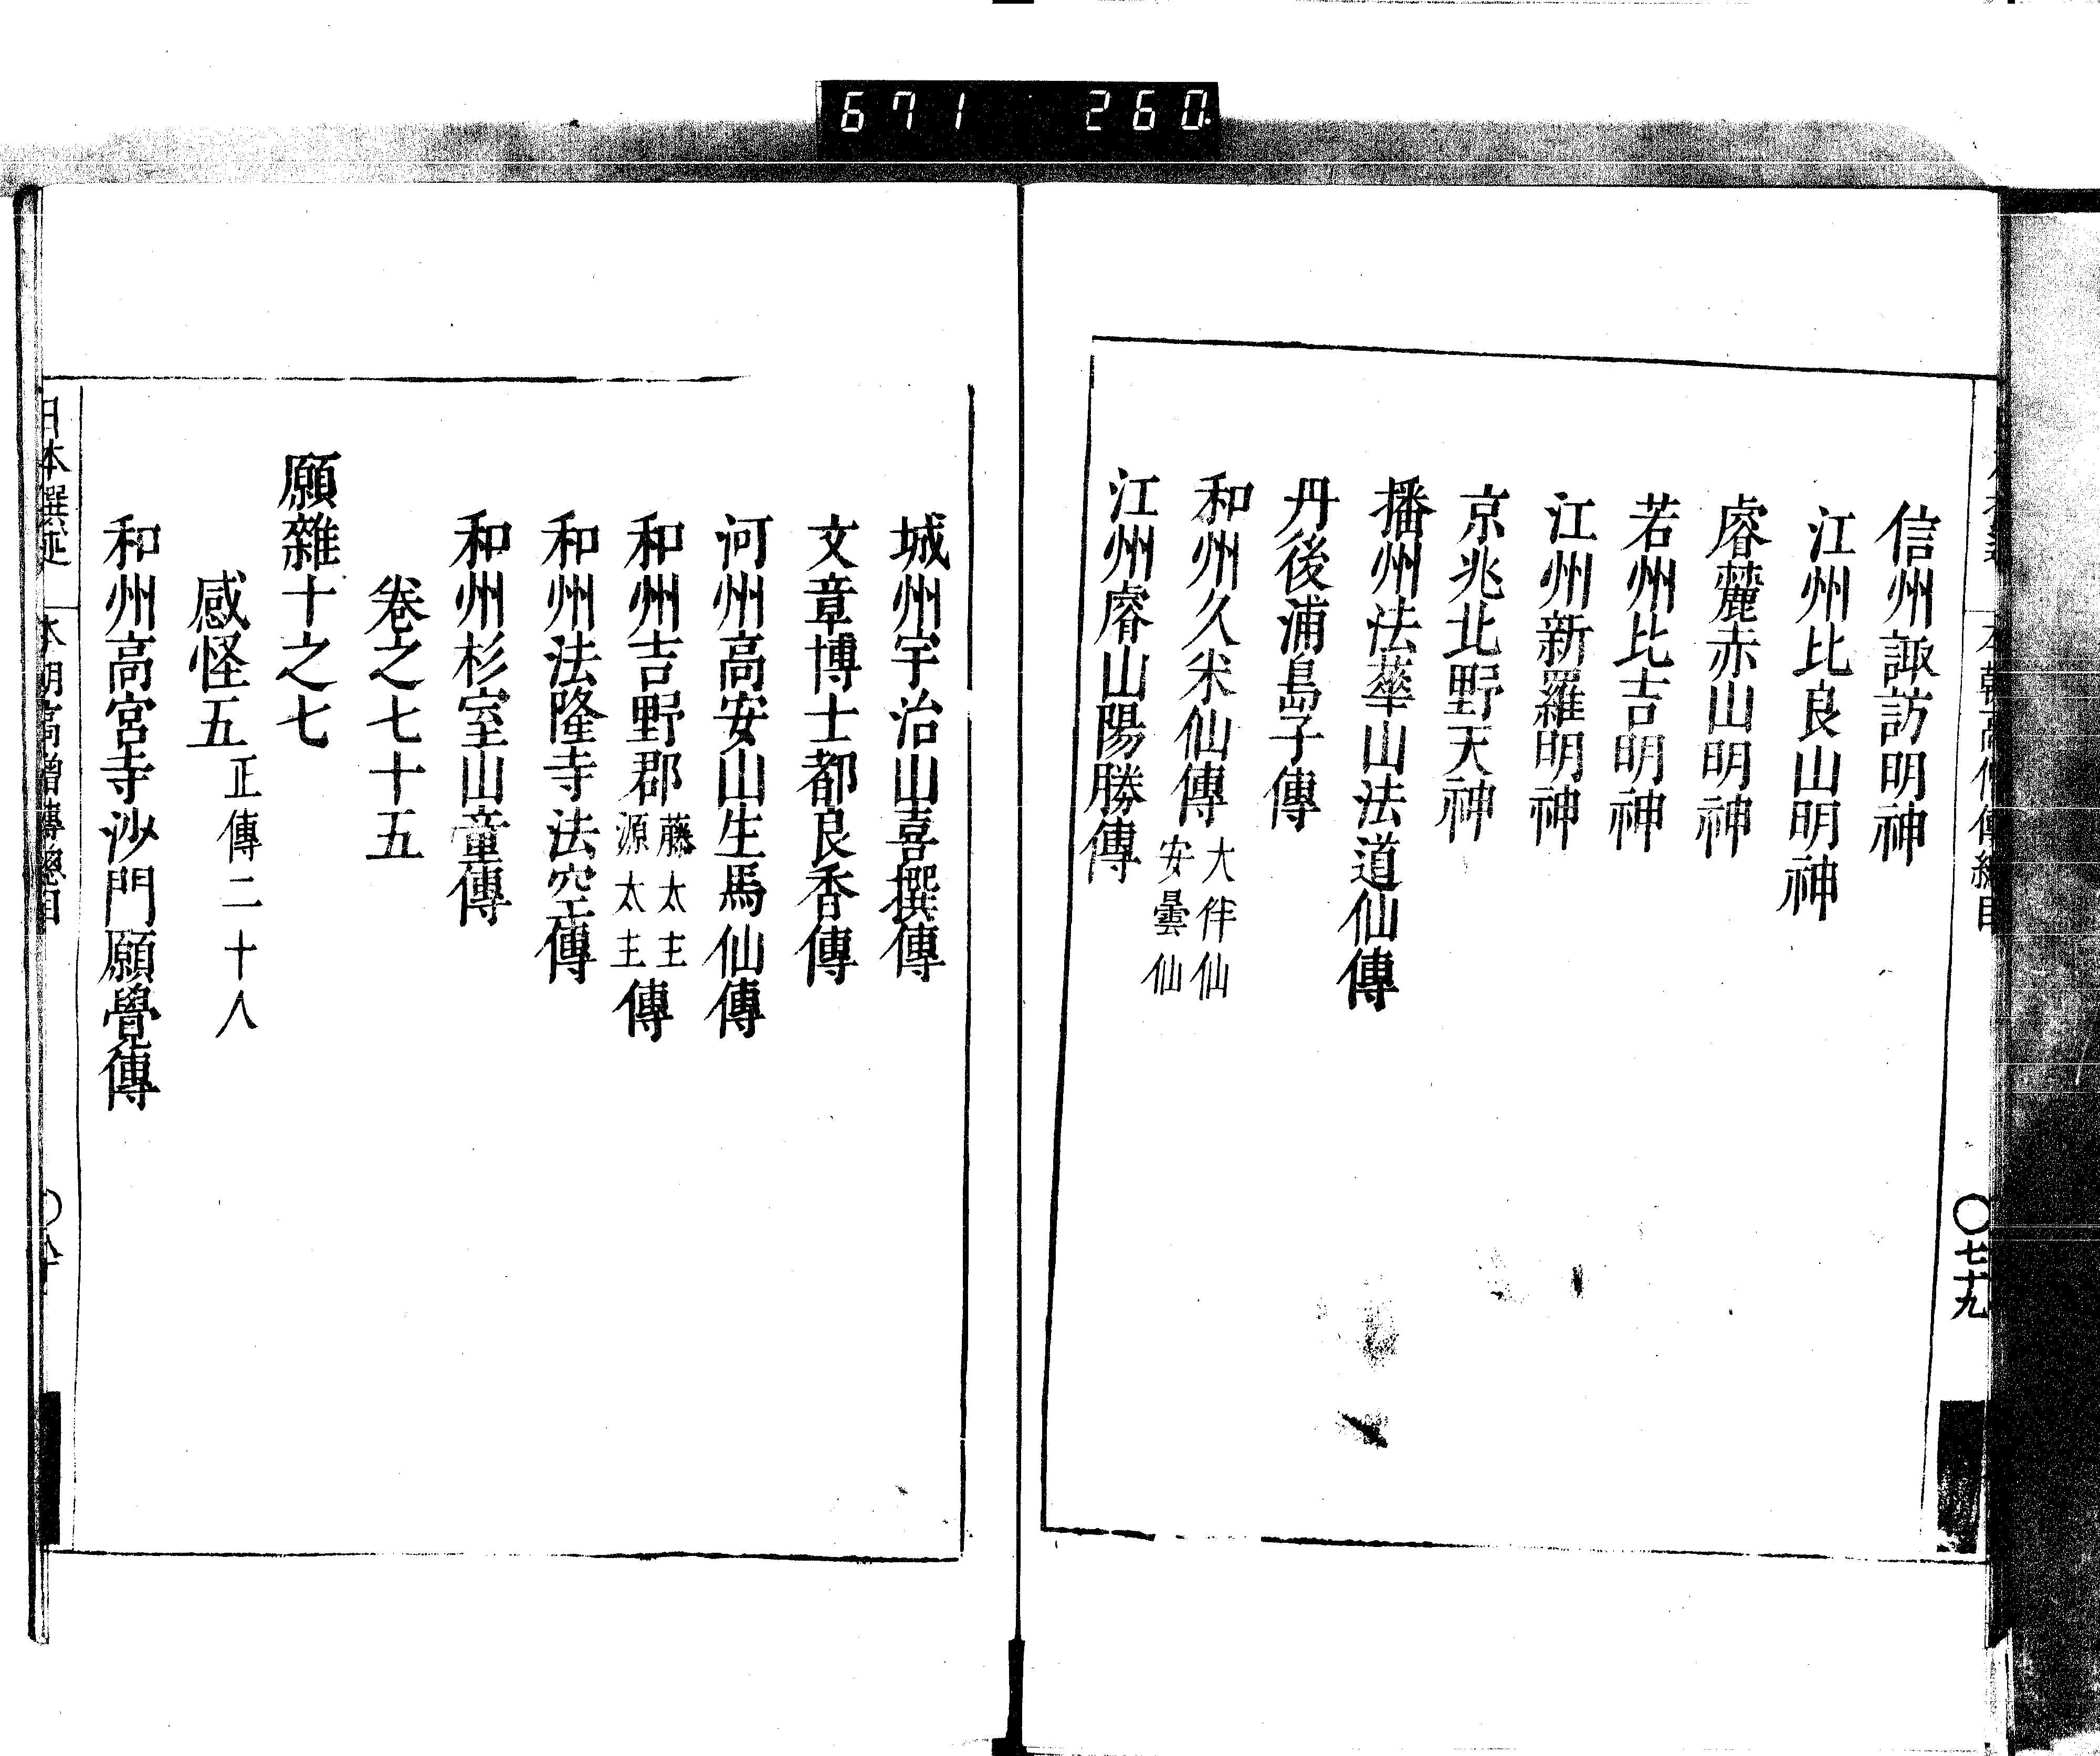 671 260
信州諏訪明神
江州比良山明神
睿麓赤山明神
若州比吉明神
江州新羅明神
京兆北野天神
播州法華山法道仙傳
丹後浦島子傳
和州久米仙傳 大伴仙 安曇仙
江州睿山陽勝傳
〇七十九
城州宇治山喜撰傳
文章博士都良香傳
河州高安山生馬仙傳
和州吉野郡 藤太主 源太主 傳
和州法隆寺法空傳
和州杉室山童傳
卷之七十五
願雜十之七
感怪五 正傳二十八
和州高宮寺沙門願覺傳
本朝高僧傳總目